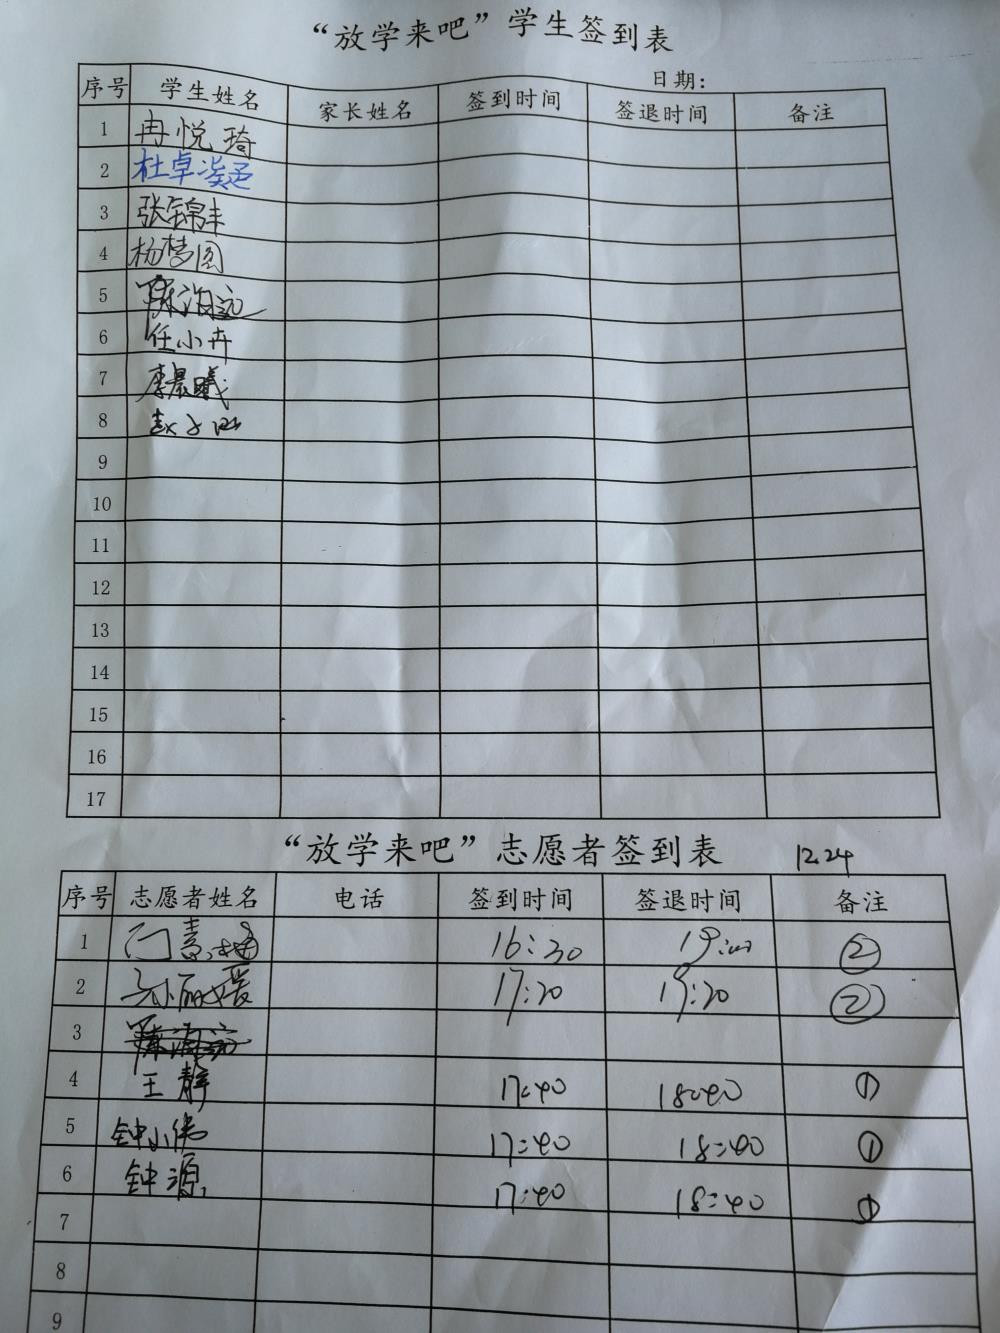 “放学来吧”学生签到表
日期:
序号 学生姓名 家长姓名 签到时间 签退时间 备注
1 冉悦琦
2 杜卓
3 张锦丰
4 杨梦圆
5 陈
6 任小卉
7 李晨曦
8 赵子
9
10
11
12
13
14
15
16
17
“放学来吧”志愿者签到表 12.24
序号 志愿者姓名 电话 签到时间 签退时间 备注
1 16:30 19:00 ②
2 17:20 19:20 ②
3
4 王静 17:40 18:40 ①
5 钟小伟 17:40 18:40 ①
6 钟源 17:40 18:40 ①
7
8
9